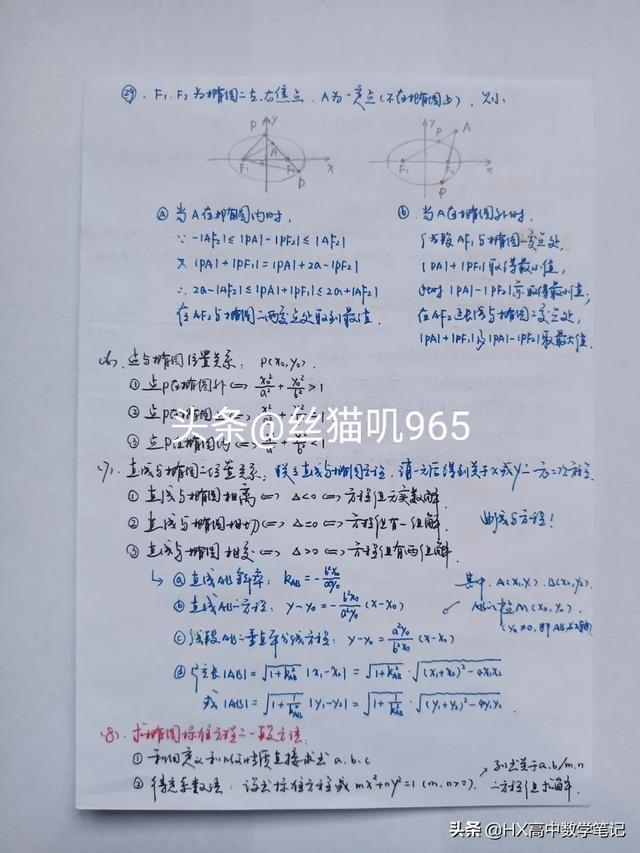 ㉙. F₁、F₂为椭圆二左、右焦点. A为一定点(不在椭圆上), 则:
P y A F₁ F₂ P x
y P A F₁ F₂ P x
ⓐ 当A在椭圆内时,
∵ -|AF₂| ≤ |PA|-|PF₂| ≤ |AF₂|
又 |PA|+|PF₁| = |PA|+2a-|PF₂|
∴ 2a-|AF₂| ≤ |PA|+|PF₁| ≤ 2a+|AF₂|
在AF₂与椭圆二两交点处取到最值.
ⓑ 当A在椭圆外时.
线段AF₁与椭圆二交点处,
|PA|+|PF₁|取得最小值,
此时|PA|-|PF₂|亦取得最小值;
在AF₂延长线与椭圆二交点处,
|PA|+|PF₁|与|PA|-|PF₂|取最大值.
(6). 点与椭圆位置关系: P(x₀,y₀).
① 点P在椭圆外 ⟺ x₀²/a² + y₀²/b² > 1
② 点P在椭圆 ⟺
③ 点P在椭圆内 ⟺ < 1
头条@丝猫叽965
(7). 直线与椭圆二位置关系: 联立直线与椭圆方程, 消元后得到关于x或y二一元二次方程
① 直线与椭圆相离 ⟺ Δ<0 ⟺ 方程组无实数解.
② 直线与椭圆相切 ⟺ Δ=0 ⟺ 方程组有一组解.
③ 直线与椭圆相交 ⟺ Δ>0 ⟺ 方程组有两组解.
曲线与方程!
↳ ⓐ 直线AB斜率: k_AB = -b²x₀/a²y₀
ⓑ 直线AB二方程: y-y₀ = -b²x₀/a²y₀ (x-x₀)
ⓒ 线段AB二垂直平分线方程: y-y₀ = a²y₀/b²x₀ (x-x₀)
其中. A(x₁,y₁). B(x₂,y₂).
AB中点M(x₀,y₀).
(y₀≠0, 即AB
ⓓ 弦长|AB| = √(1+k²_AB) |x₁-x₂| = √(1+k²_AB) · √((x₁+x₂)²-4x₁x₂)
或|AB| = √(1+1/k²_AB) |y₁-y₂| = √(1+1/k²_AB) · √((y₁+y₂)²-4y₁y₂).
(8). 求椭圆标准方程二一般方法:
① 利用定义和几何性质直接求出a、b、c
② 待定系数法: 设出标准方程或mx²+ny²=1 (m、n>0). ↗ 列出关于a、b/m、n
二方程组求解.
头条 @HX高中数学笔记